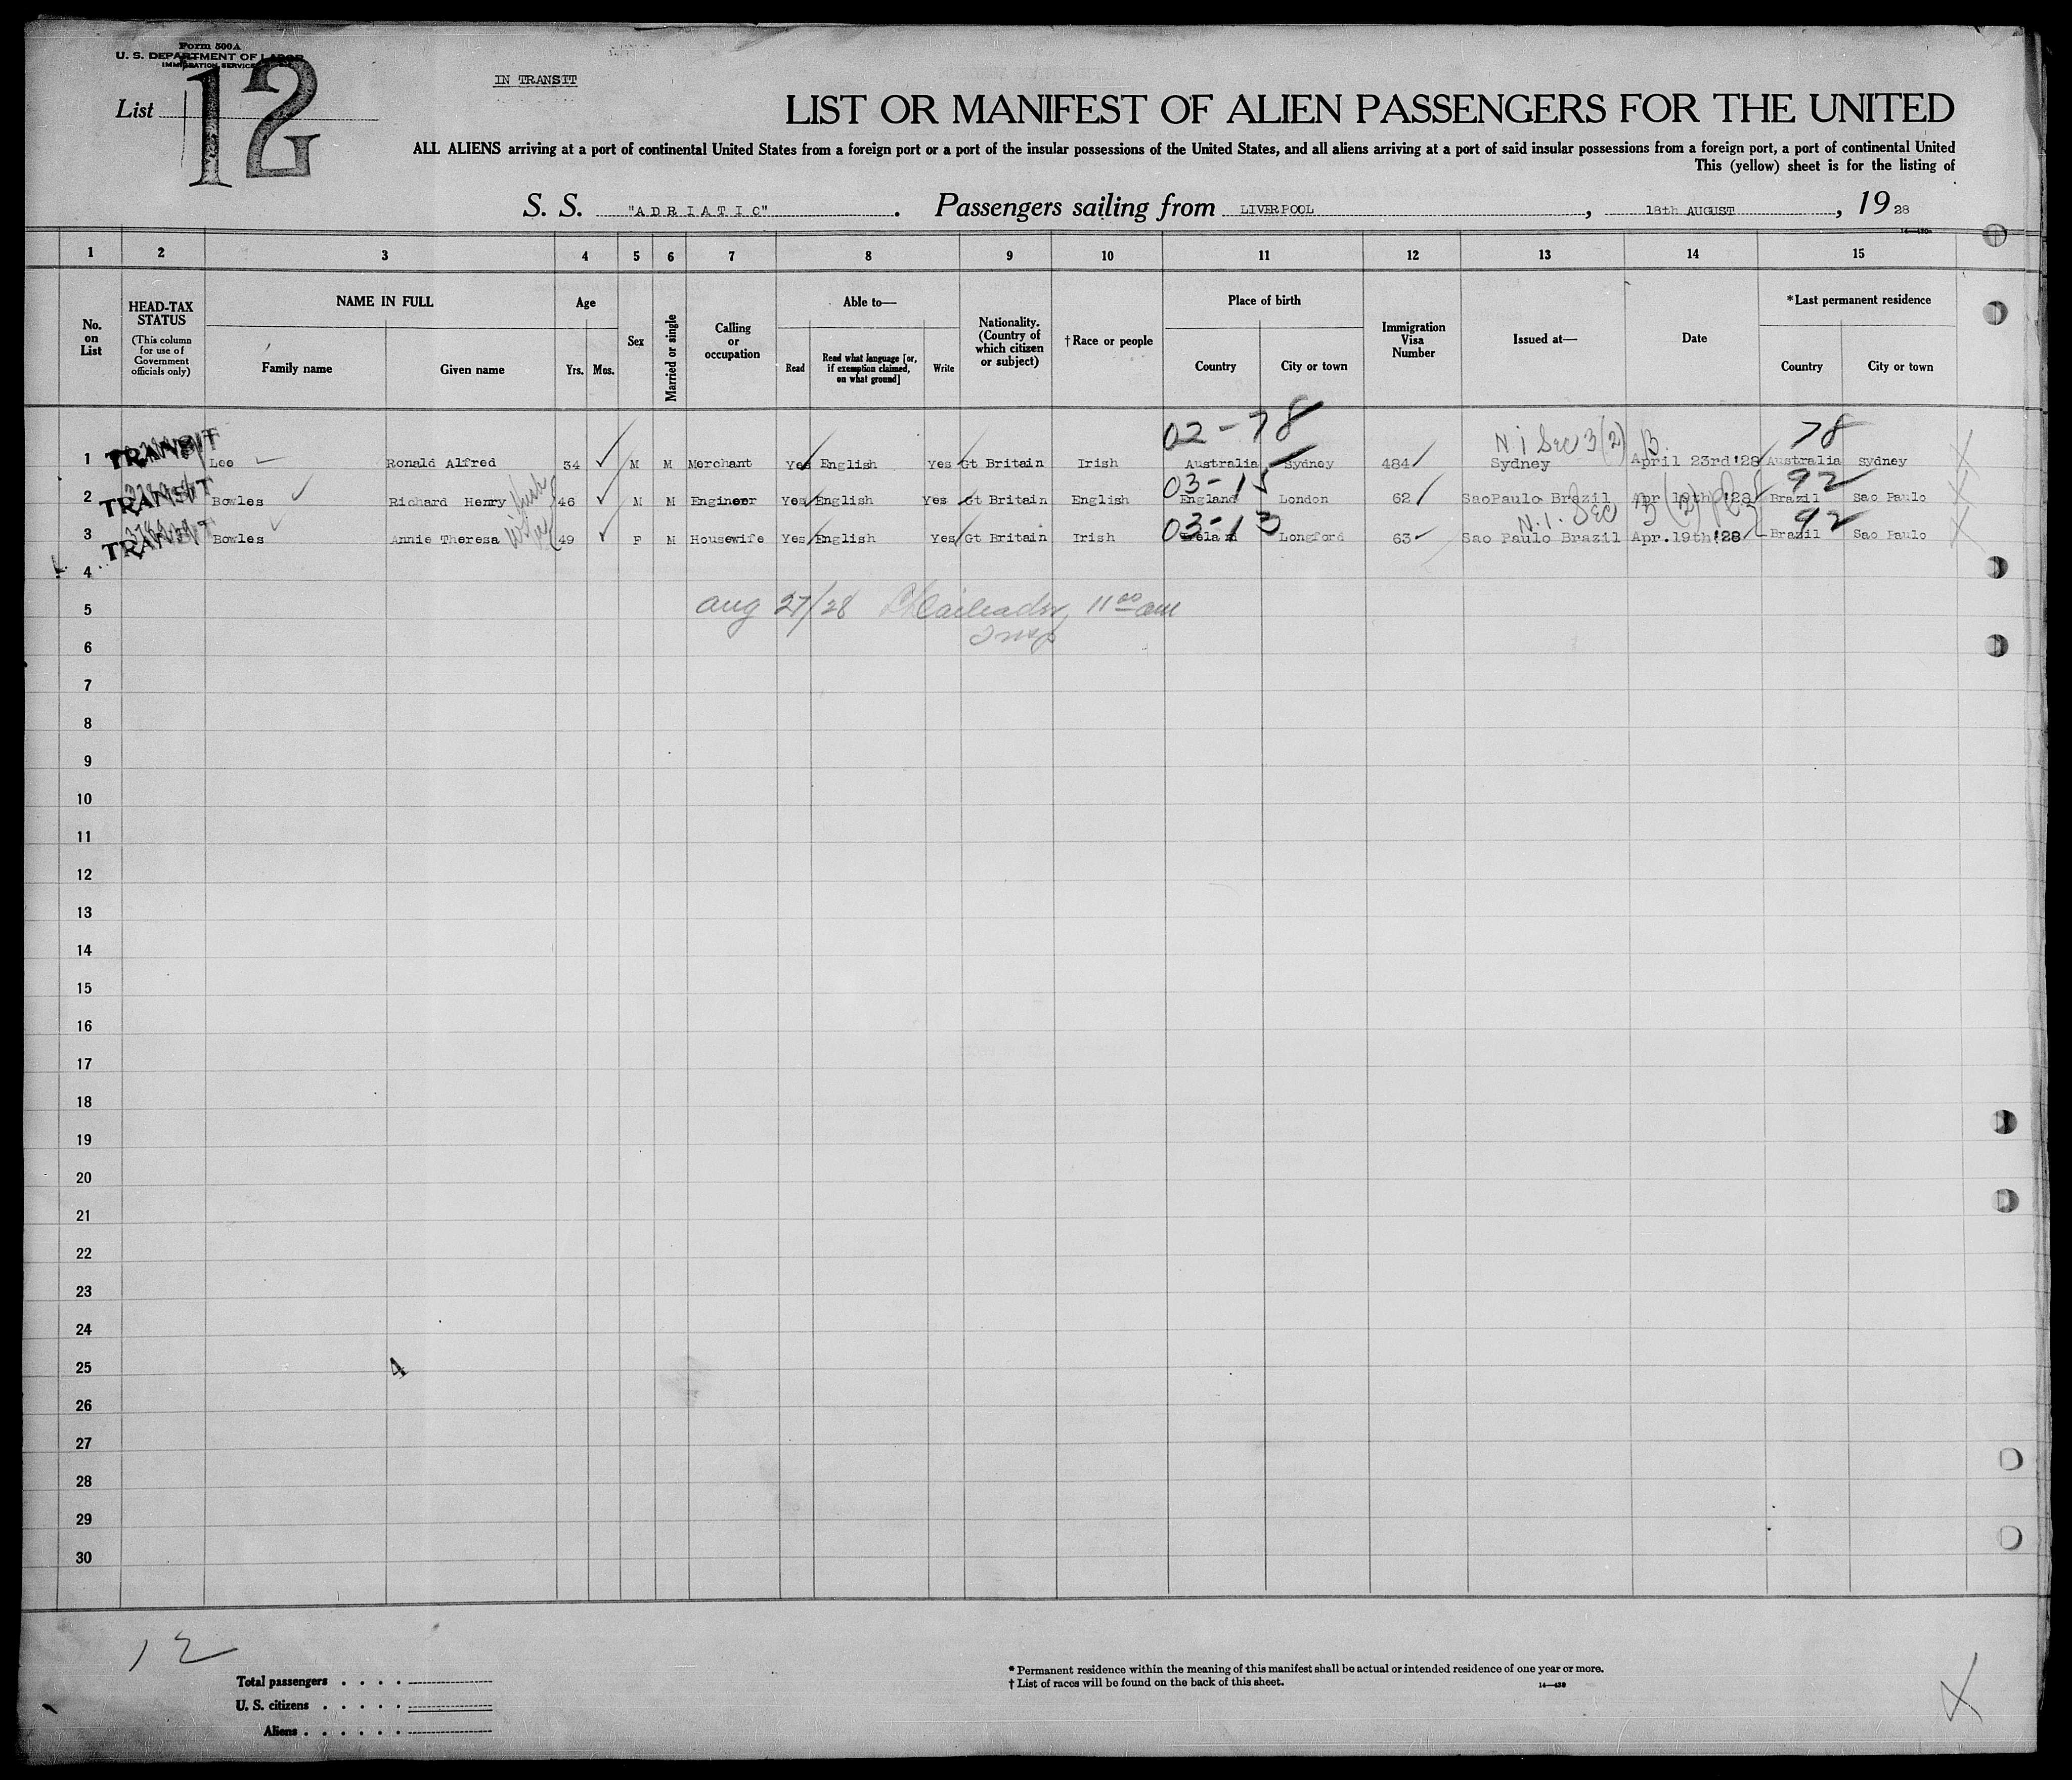 Form 500A
U. S. DEPARTMENT OF LABOR
IMMIGRATION SERVICE
List 12
IN TRANSIT
LIST OR MANIFEST OF ALIEN PASSENGERS FOR THE UNITED
ALL ALIENS arriving at a port of continental United States from a foreign port or a port of the insular possessions of the United States, and all aliens arriving at a port of said insular possessions from a foreign port, a port of continental United
This (yellow) sheet is for the listing of
S. S. "ADRIATIC". Passengers sailing from LIVERPOOL, 18th AUGUST, 1928
1 2 3 4 5 6 7 8 9 10 11 12 13 14 15
No. on List
HEAD-TAX STATUS (This column for use of Government officials only)
NAME IN FULL Family name Given name
Age Yrs. Mos.
Sex
Married or single
Calling or occupation
Able to— Read Read what language [or, if exemption claimed, on what ground] Write
Nationality. (Country of which citizen or subject)
†Race or people
Place of birth Country City or town
Immigration Visa Number
Issued at—
Date
*Last permanent residence Country City or town
02-78 N I Sec 3 (2) B. 78
1 TRANSIT Lee Ronald Alfred 34 M M Merchant Yes English Yes Gt Britain Irish Australia Sydney 484 Sydney April 23rd'28 Australia Sydney
03-15 92
2 TRANSIT Bowles Richard Henry 46 M M Engineer Yes English Yes Gt Britain English England London 62 SaoPaulo Brazil Apr 19th '28 Brazil Sao Paulo
03-13 N. I. Sec 3 (2) 92
3 TRANSIT Bowles Annie Theresa wife 49 F M Housewife Yes English Yes Gt Britain Irish Ireland Longford 63 Sao Paulo Brazil Apr.19th'28 Brazil Sao Paulo
4
5 Aug 27/28 11 00 am
Insp
6
7
8
9
10
11
12
13
14
15
16
17
18
19
20
21
22
23
24
25 4
26
27
28
29
30
12
Total passengers . . . .
U. S. citizens . . . . .
Aliens . . . . . .
* Permanent residence within the meaning of this manifest shall be actual or intended residence of one year or more.
† List of races will be found on the back of this sheet.
X